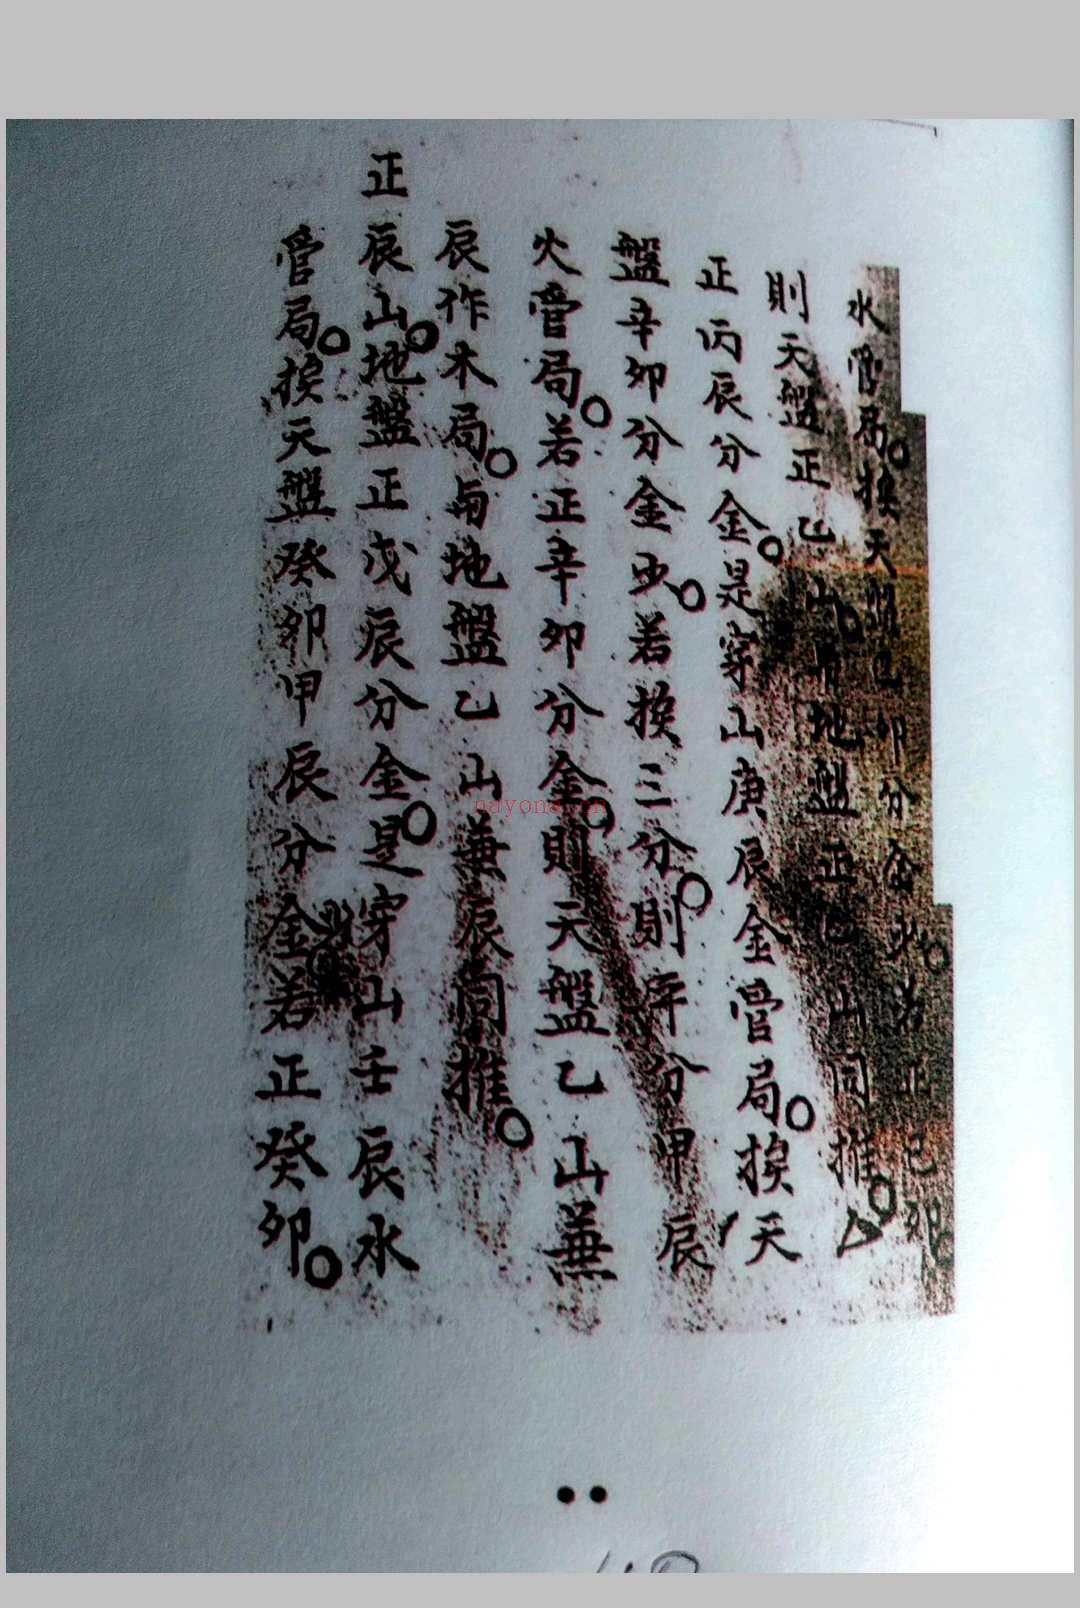 水管局挨天盤己卯分金少若正己卯
則天盤正乙山与地盤正乙山同推
正丙辰分金是穿山庚辰金管局挨天
盤辛卯分金少若挨三分則坪分甲辰
火管局若正辛卯分金則天盤乙山兼
辰作木局与地盤乙山兼辰同推
正辰山地盤正戊辰分金是穿山壬辰水
管局挨天盤癸卯甲辰分金若正癸卯
nayona.cn